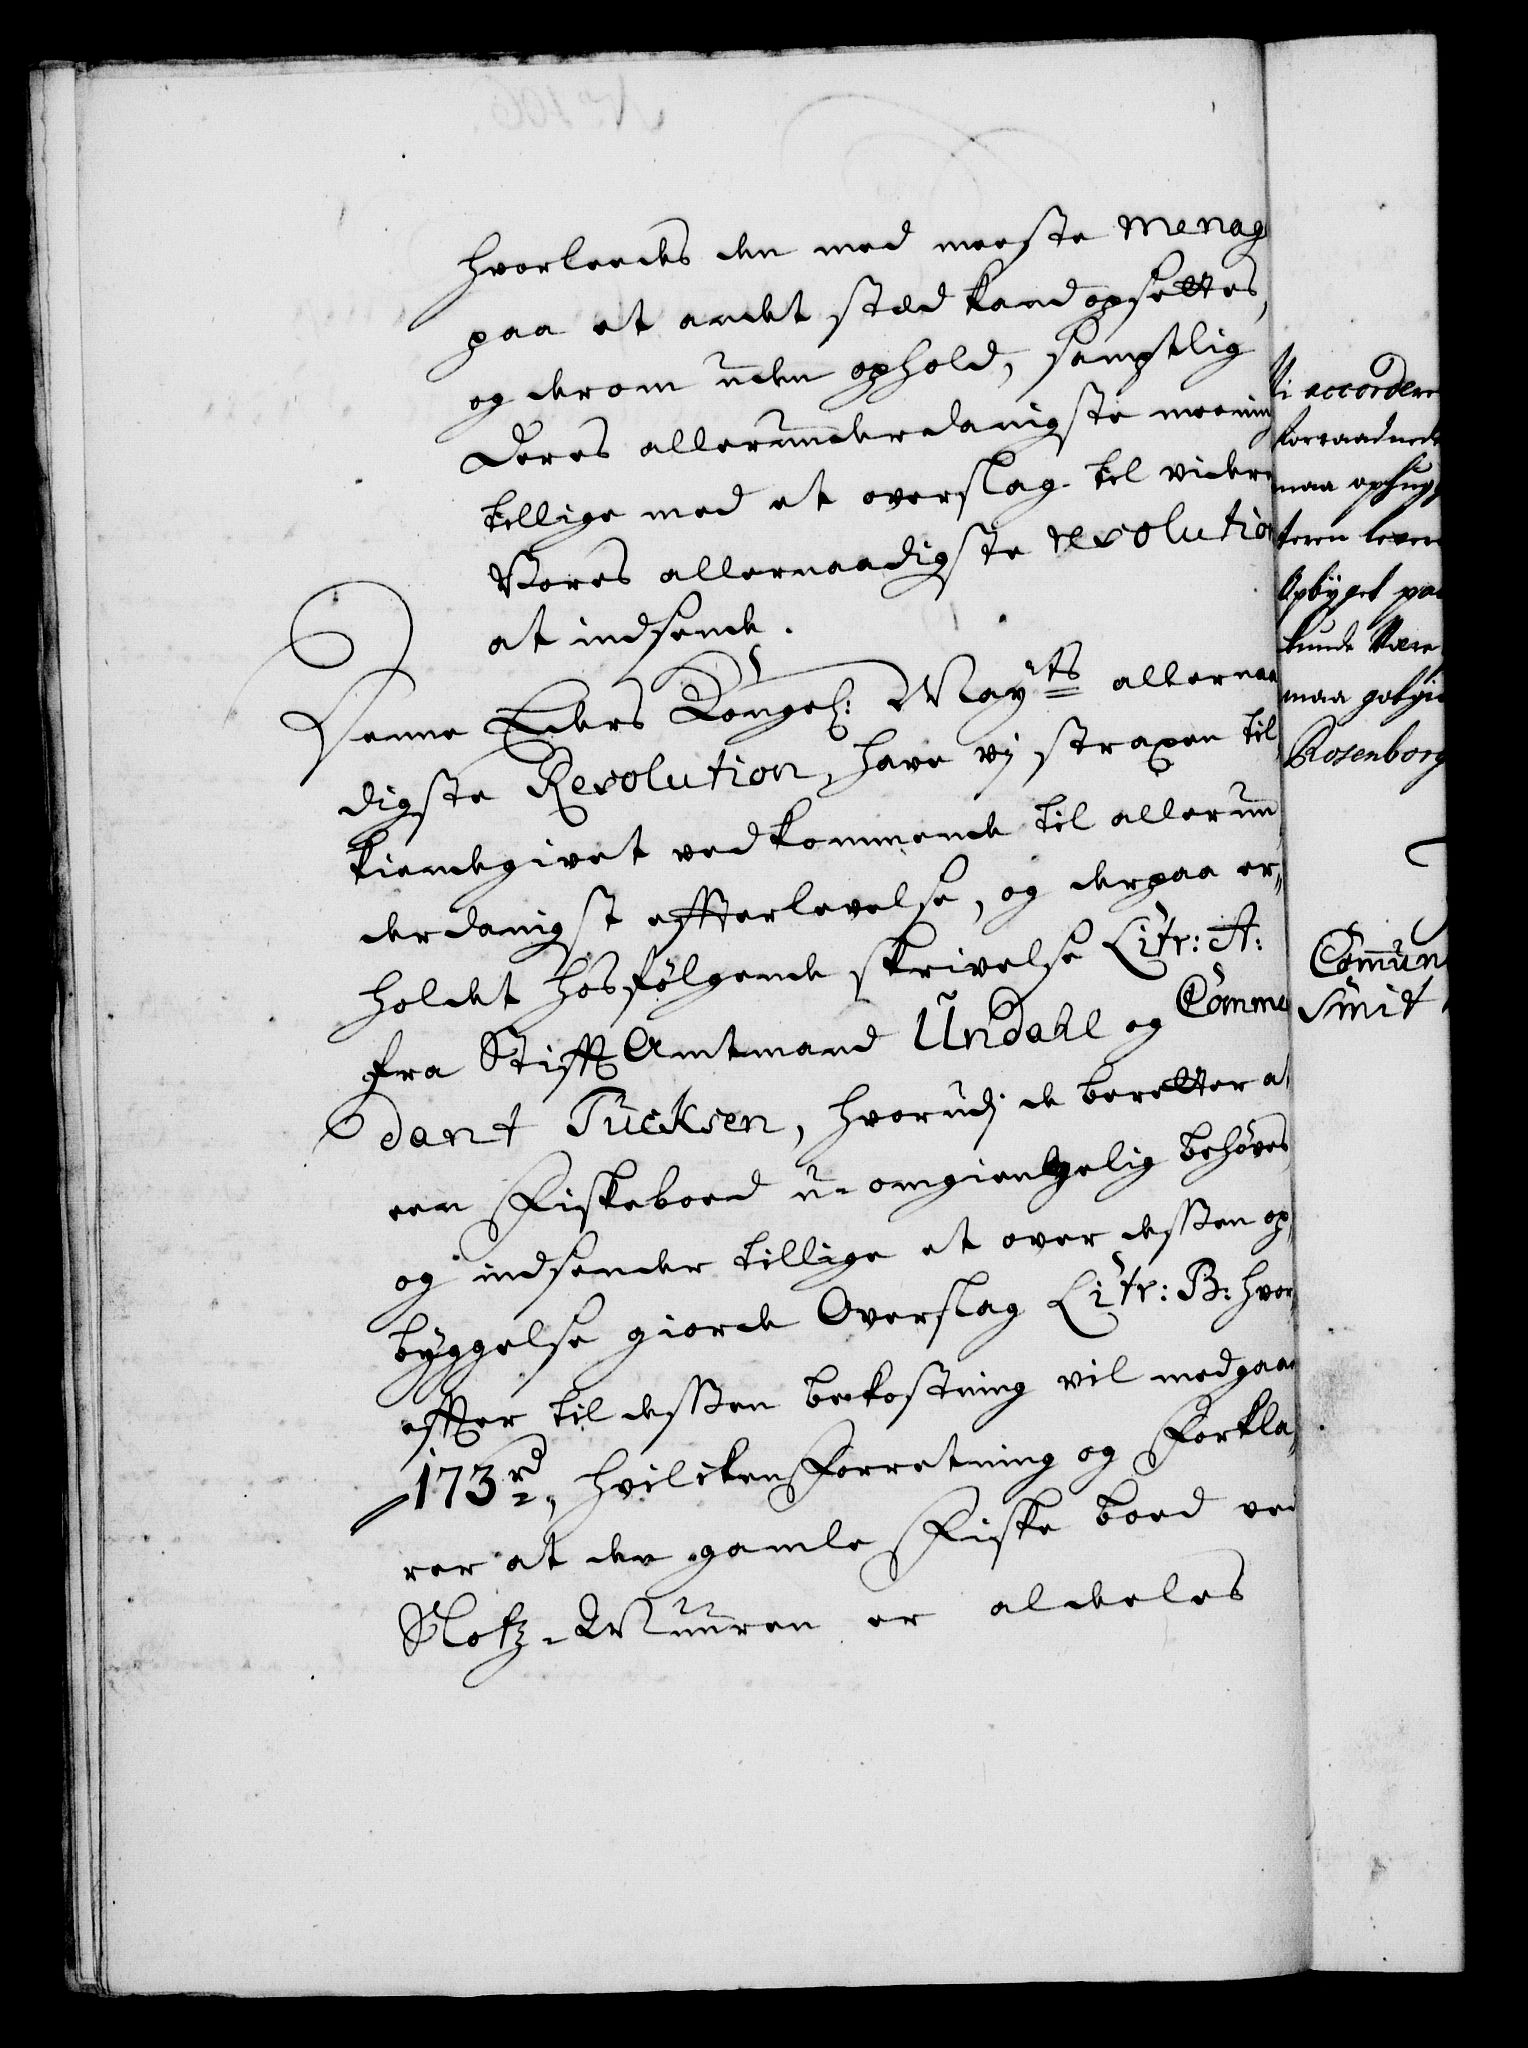 hvorleedes den med meeste menag
paa et andet stæd kand opsettes,
og derom uden ophold, samptlig
Deres allerunderdanigste meening
tillige med et overslag til videre
Vores allernaadigste resolution
at indsende.
Denne Eders Kongel: Mayts allernaa
digste Resolution, have vj straxen til
kiendegivet vedkommende til allerun
derdanigst efterlevelse, og derpaa er,
holdet hosfølgende skrivelse Litr: A:
fra Stift Amtmand Undahl og Comme
dant Tücksen, hvorudj de beretter at
een Fiskeboed u-omgiengelig behøves
og indsender tillige et over dessen op,
byggelse giorde Overslag Litr: B: hvor,
effter til dessen bekostning vil medgaa
173 rd, hvilcken Forretning og Forkla,
rer at den gamle Fiske boed ved
Slotz-Muuren er aldeles
Vi accordere
forraadnede
maa ophug
teren lever
Opbyget paa
kunde være
maa
Rosenborg
Commun
Smit